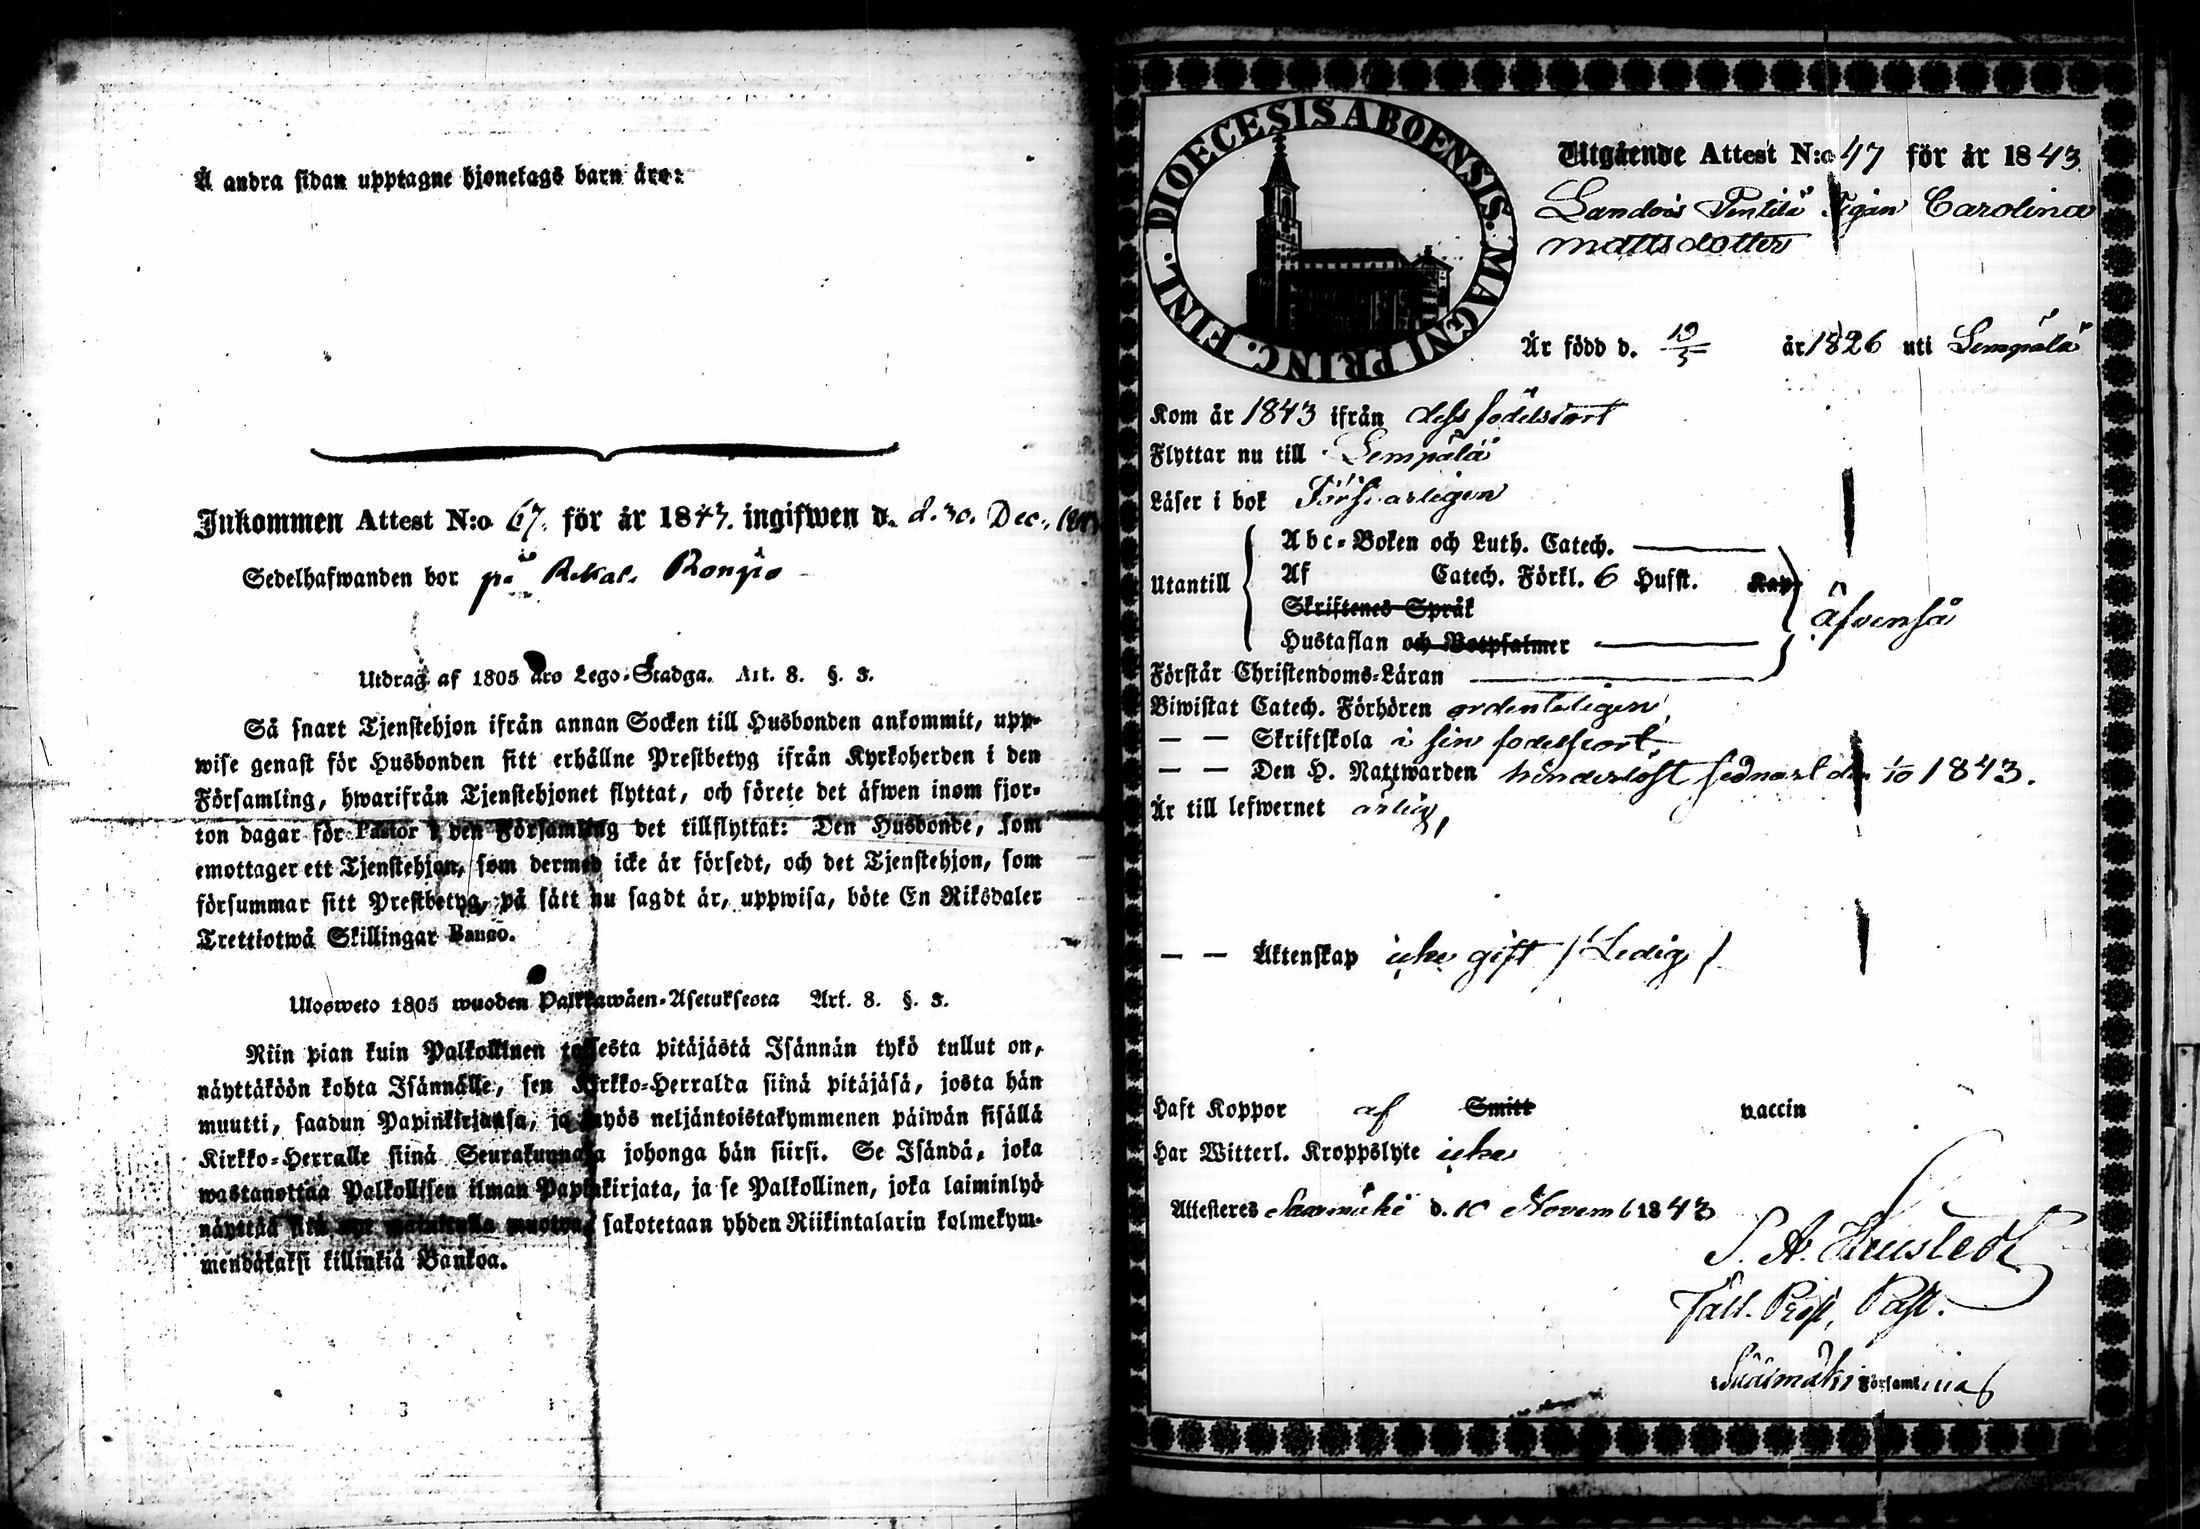 Å andra sidan upptagne hjonelags barn äro:
Inkommen Attest N:o 67. för år 1843. ingifwen d. d. 30. Dec.
Sedelhafwanden bor på
Utdrag af 1805 års Lego-Stadga. Art. 8. §. 3.
Så snart Tjenstehjon ifrån annan Socken till Husbonden ankommit, upp-
wise genast för Husbonden sitt erhållne Prestbetyg ifrån Kyrkoherden i den
Församling, hwarifrån Tjenstehjonet flyttat, och förete det äfwen inom fjor-
ton dagar för Pastor i den Församling det tillflyttat: Den Husbonde, som
emottager ett Tjenstehjon, som dermed icke är försedt, och det Tjenstehjon, som
försummar sitt Prestbetyg, på sätt nu sagdt är, uppwisa, böte En Riksdaler
Trettiotwå Skillingar Banco.
Ulosweto 1805 wuoden Palkkawäen-Asetuksesta Art. 8. §. 3.
Niin pian kuin Palkollinen toisesta pitäjästä Isännän tykö tullut on,
näyttäköön kohta Isännälle, sen Kirkko-Herralda siinä pitäjäsä, josta hän
muutti, saadun Papinkirjansa, ja myös neljäntoistakymmenen päiwän sisällä
Kirkko-Herralle siinä Seurakunnasa johonga hän siirsi. Se Isändä, joka
wastanottaa Palkollisen ilman Papinkirjata, ja se Palkollinen, joka laiminlyö
näyttää sitä nyt mainitulla muotoa, sakotetaan yhden Riikintalarin kolmekym-
mendäkaksi killinkiä Bankoa.
DIOECESIS ABOENSIS. MAGNI PRINC. FINL.
Utgående Attest N:o 47 för år 1843.
Pentilä Pigan Carolina
Mattsdotter
Är född d. 19/5 år 1826 uti Lempälä
Kom år 1843 ifrån dess födelseort
Flyttar nu till Lempälä
Läser i bok Försvarligen
Abc-Boken och Luth. Catech.
Utantill Af Catech. Förkl. 6 Hufst. Kap.
Skriftenes Språk
Hustaflan och Botpsalmer
äfvenså
Förstår Christendoms-Läran
Biwistat Catech. Förhören ordenteligen,
— — Skriftskola i sin födelseort,
— — Den H. Nattwarden hinderlöst sednast den 1/10 1843.
Är till lefwernet ärlig,
— — Äktenskap icke gift / Ledig /
Haft Koppor af Smitt vaccin
Har Witterl. Kroppslyte icke
Attesteras Saarimäki d. 10 Novemb 1843
S. A.
Past.
Församling